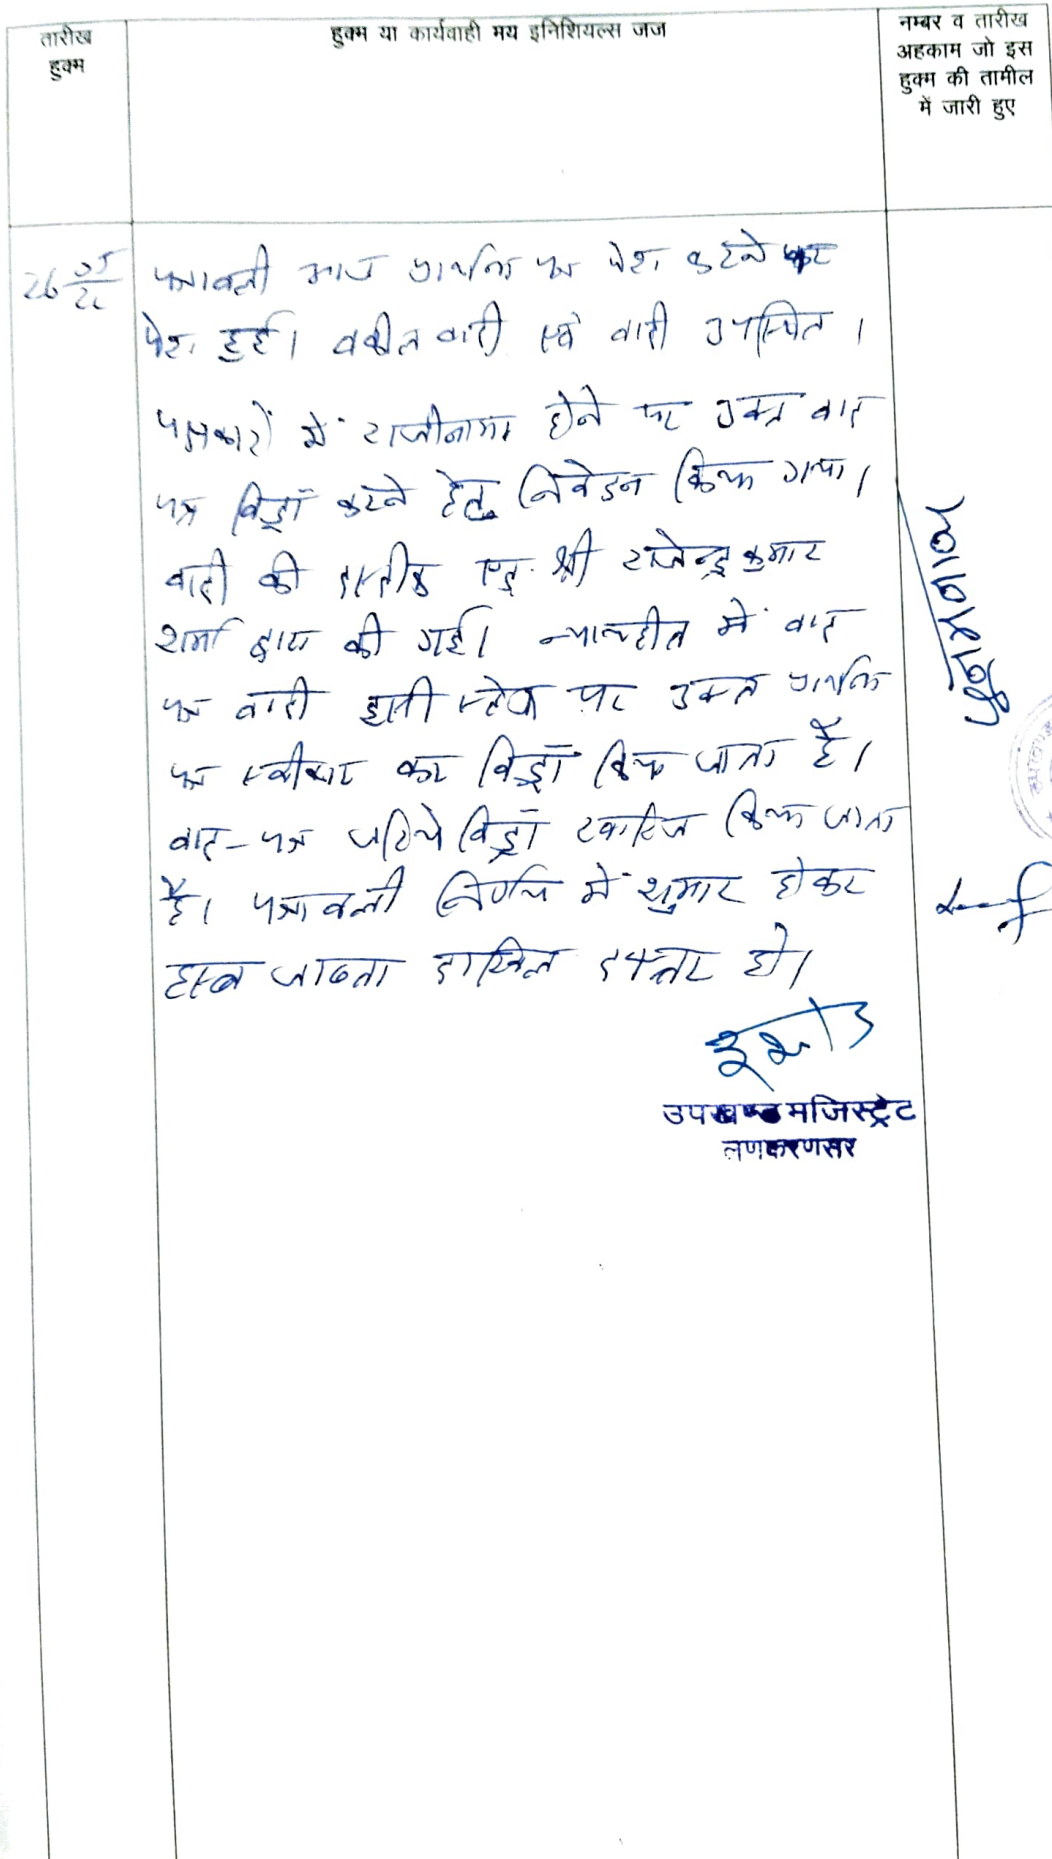 तारीख
हुक्म
हुक्म या कार्यवाही मय इनिशियल्स जज
नम्बर व तारीख
अहकाम जो इस
हुक्म की तामील
में जारी हुए
26
पत्रावली आज प्रार्थना पत्र पेश करने पर
पेश हुई। वकील वादी एवं वादी उपस्थित ।
पक्षकारों में राजीनामा होने पर उक्त वाद
पत्र विड्रॉ करने हेतु निवेदन किया गया।
वादी की तस्दीक एड. श्री राजेन्द्र कुमार
शर्मा द्वारा की गई। न्यायहित में वाद
पत्र वादी इसी स्टेज पर उक्त प्रार्थना
पत्र स्वीकार कर विड्रॉ किया जाता है।
वाद-पत्र जरिये विड्रॉ खारिज किया जाता
है। पत्रावली निर्णय में शुमार होकर
हस्ब जाब्ता दाखिल दफ्तर हो।
उपखण्ड मजिस्ट्रेट
लूणकरणसर